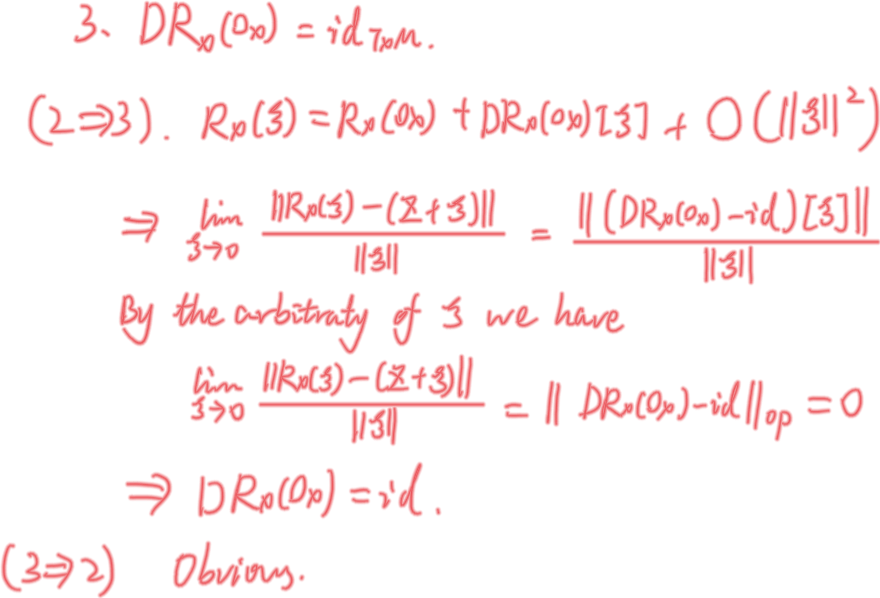 3、 DRₓ(0ₓ) = id_{TₓM}.
(2⇒3). Rₓ(ξ) = Rₓ(0ₓ) + DRₓ(0ₓ)[ξ] + O(‖ξ‖²)
⇒ lim_{ξ→0} ‖Rₓ(ξ)-(x+ξ)‖ / ‖ξ‖ = ‖(DRₓ(0ₓ)-id)[ξ]‖ / ‖ξ‖
By the arbitraty of ξ we have
lim_{ξ→0} ‖Rₓ(ξ)-(x+ξ)‖ / ‖ξ‖ = ‖DRₓ(0ₓ)-id‖_{op} = 0
⇒ DRₓ(0ₓ) = id.
(3⇒2) Obvious.